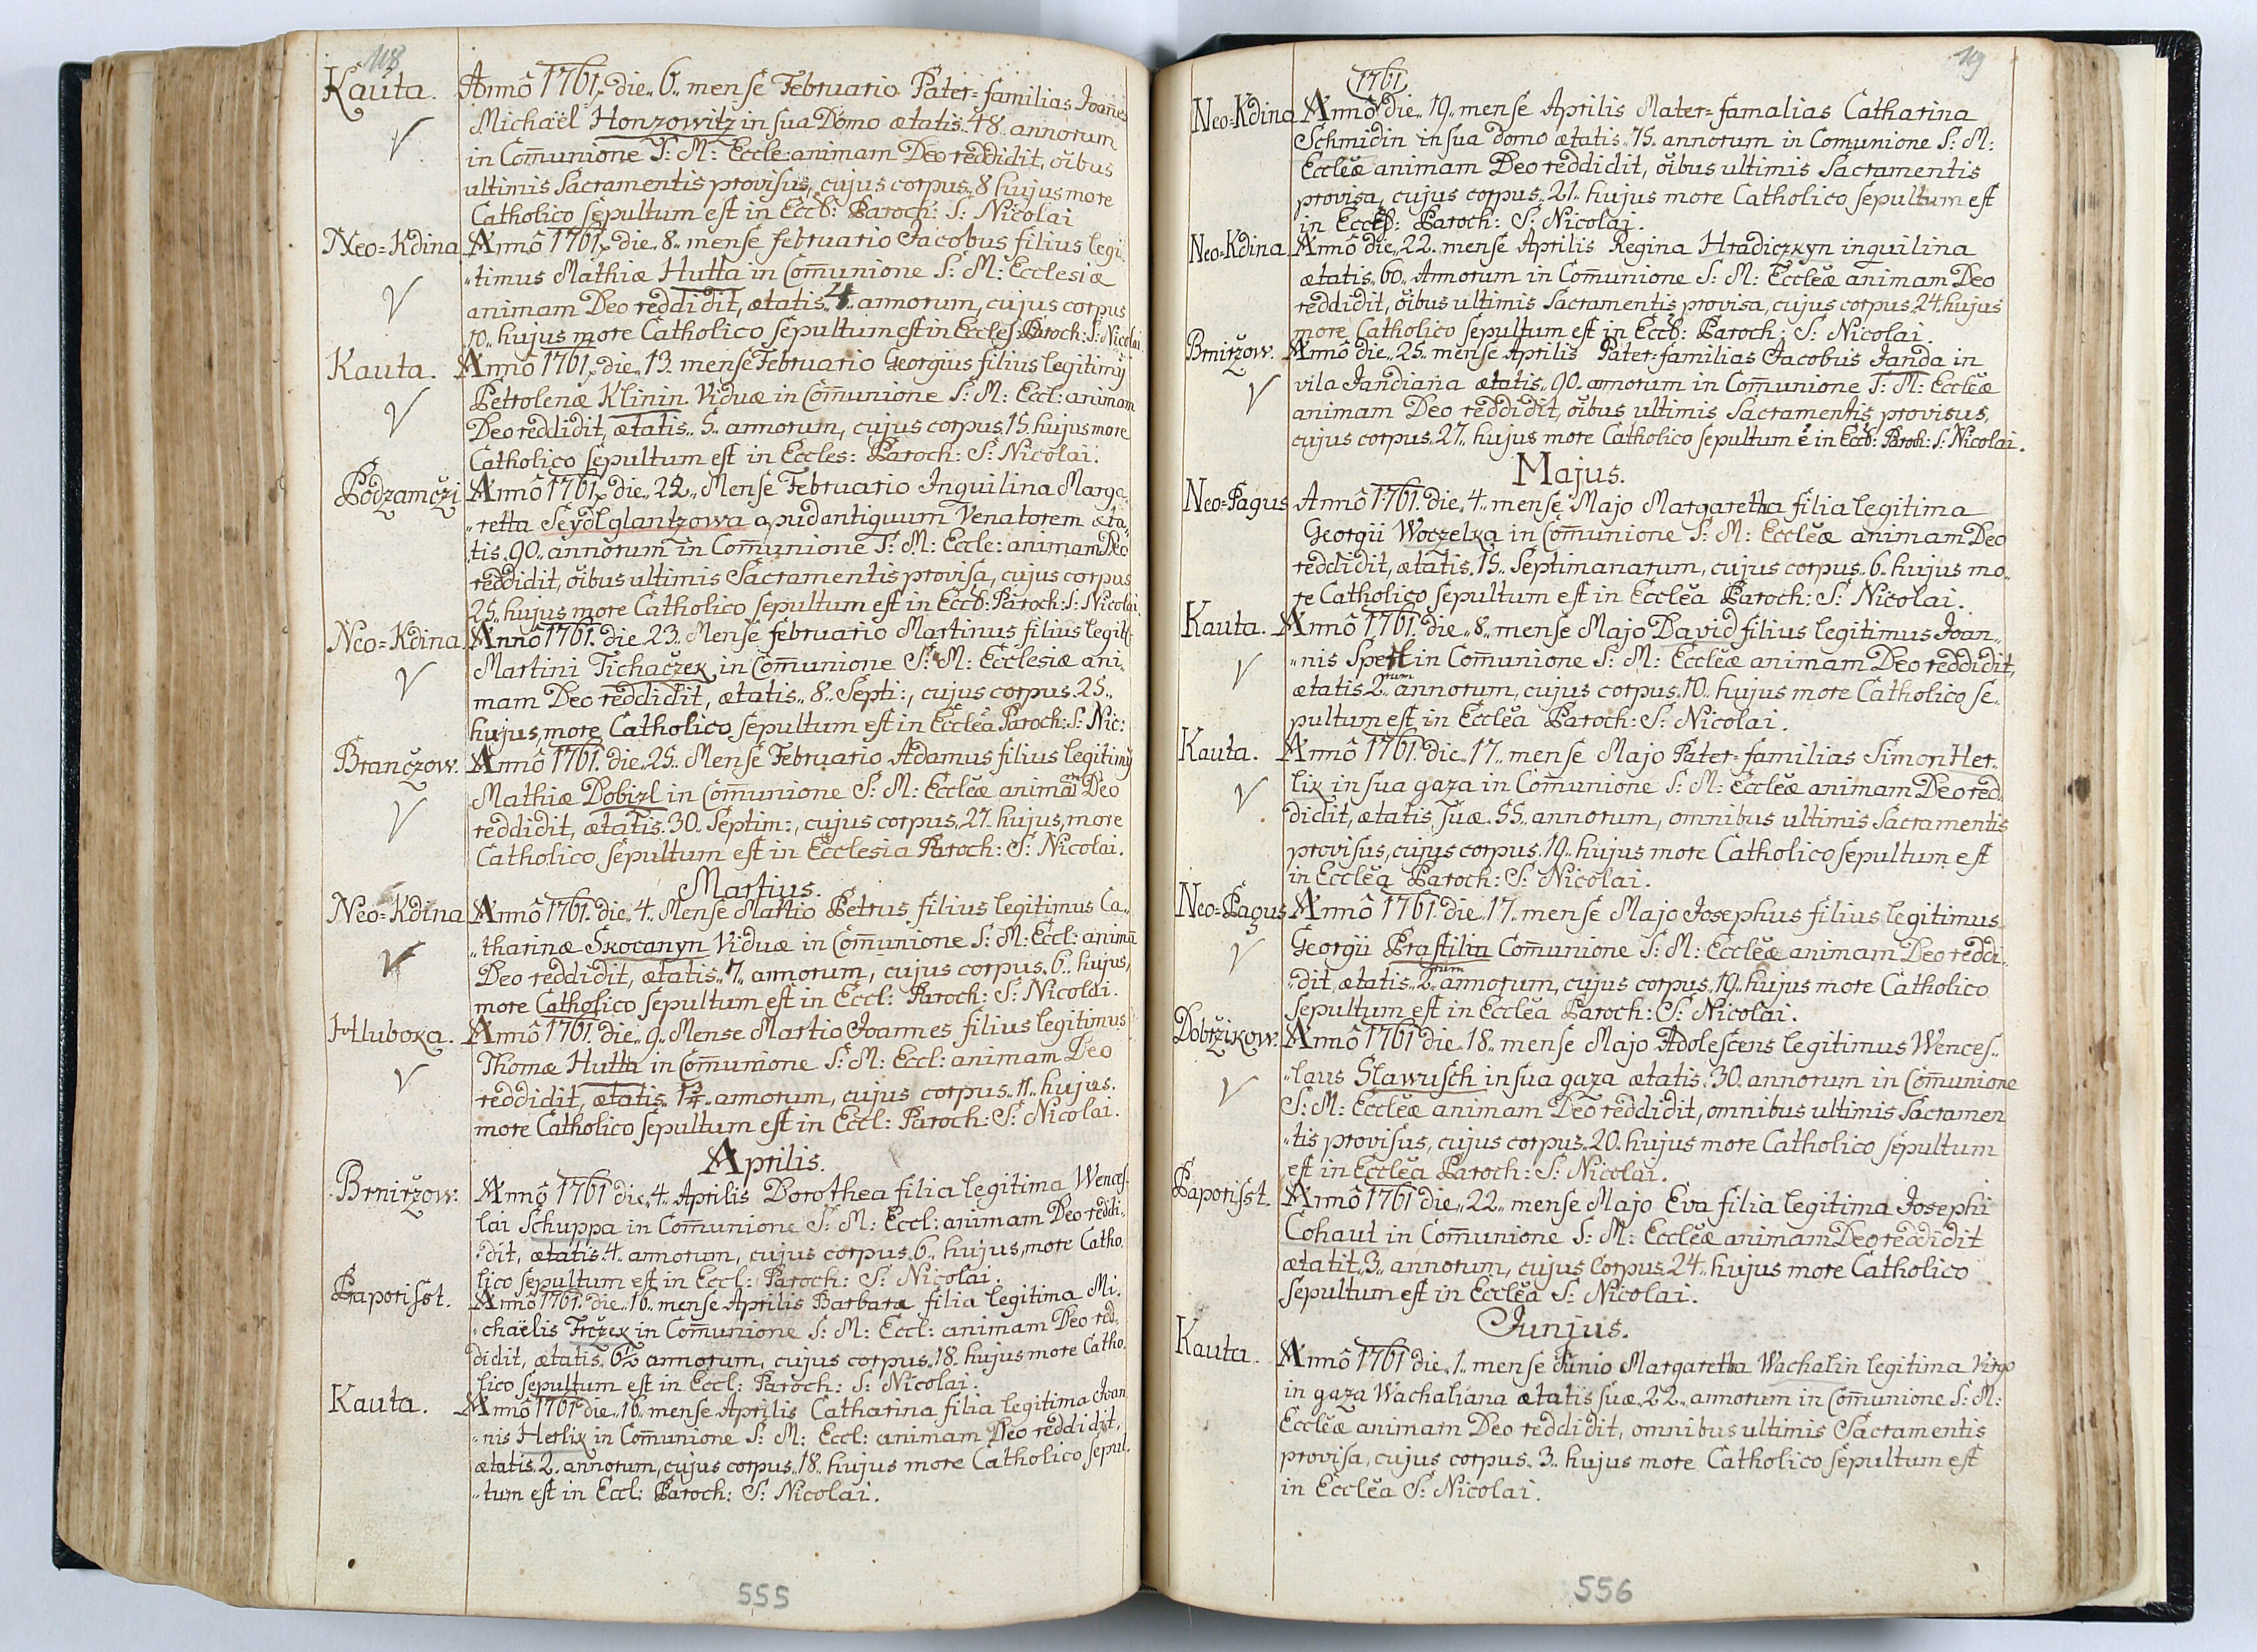 118
Kauta. Annô 1761. die 6. mense Februario Pater-familias Joañes
Michaël Honzowitz in sua Domo ætatis 48 annorum
in Com̄unione S: M: Eccle: animam Deo reddidit, o͠ibus
ultimis Sacramentis provisus, cujus corpus 8 hujus more
Catholico sepultum est in Eccl: Paroch: S: Nicolai
Neo-Kdina Annô 1761. die 8. mense februario Jacobus filius legi-
timus Mathiæ Hutta in Com̄unione S: M: Ecclesiæ
animam Deo reddidit, ætatis 4. annorum, cujus corpus
10. hujus more Catholico sepultum est in Eccles: Paroch: S: Nicolai
Kauta. Annô 1761. die 13. mense Februario Georgius filius legitimȳ
Petrolenæ Klinin Viduæ in Com̄unione S: M: Eccl: animam
Deo reddidit, ætatis 5. annorum, cujus corpus 15. hujus more
Catholico sepultum est in Eccles: Paroch: S: Nicolai.
Podzamczi Annô 1761. die 22. Mense Februario Inquilina Marga-
retta Seÿdlglantzowa apud antiquum Venatorem æta-
tis 90. annorum in Com̄unione S: M: Eccle: animam Deo
reddidit, o͠ibus ultimis Sacramentis provisa, cujus corpus
25. hujus more Catholico sepultum est in Eccl: Paroch: S: Nicolai.
Neo-Kdina Annô 1761. die 23. Mense februario Martinus filius legit:
Martini Tichaczek in Com̄unione S: M: Ecclesiæ ani-
mam Deo reddidit, ætatis 8. Septi:, cujus corpus 25.
hujus more Catholico sepultum est in Eccl̄ea Paroch: S: Nic:
Branczow. Annô 1761. die 25. Mense Februario Adamus filius legitimȳ
Mathiæ Dobizl in Com̄unione S: M: Eccl̄eæ animam Deo
reddidit, ætatis 30. Septim:, cujus corpus 27. hujus, more
Catholico sepultum est in Ecclesia Paroch: S: Nicolai.
Martius.
Neo-Kdina Annô 1761. die 4. Mense Martio Petrus filius legitimus Ca-
tharinæ Skocanyn Viduæ in Com̄unione S: M: Eccl: animā
Deo reddidit, ætatis 7. annorum, cujus corpus 6. hujus,
more Catholico sepultum est in Eccl: Paroch: S: Nicolai.
Hluboka. Annô 1761. die 9. Mense Martio Joannes filius legitimus
Thomæ Hutta in Com̄unione S: M: Eccl: animam Deo
reddidit, ætatis annorum, cujus corpus 11. hujus.
more Catholico sepultum est in Eccl: Paroch: S: Nicolai.
Aprilis.
Brnirzow: Annô 1761 die 4. Aprilis Dorothea filia legitima Wences-
lai Schuppa in Com̄unione S: M: Eccl: animam Deo reddi-
dit, ætatis 4. annorum, cujus corpus 6. hujus, more Catho-
lico sepultum est in Eccl: Paroch: S: Nicolai.
Paporisst. Annô 1761. die 16. mense Aprilis Barbara filia legitima Mi-
chaëlis Frczek in Com̄unione S: M: Eccl: animam Deo red-
didit, ætatis 6½ annorum, cujus corpus 18. hujus more Catho-
lico sepultum est in Eccl: Paroch: S: Nicolai.
Kauta. Annô 1761 die 16. mense Aprilis Catharina filia legitima Joan-
nis Herlik in Com̄unione S: M: Eccl: animam Deo reddidit,
ætatis 2. annorum, cujus corpus 18. hujus more Catholico sepul-
tum est in Eccl: Paroch: S: Nicolai.
555
119
1761
Neo-Kdina Annô die 19. mense Aprilis Mater-famalias Catharina
Schmidin in sua domo ætatis 75. annorum in Comunione S: M:
Eccl̄eæ animam Deo reddidit, o͠ibus ultimis Sacramentis
provisa, cujus corpus 21. hujus more Catholico sepultum est
in Eccles: Paroch: S: Nicolai.
Neo-Kdina Annô die 22. mense Aprilis Regina Hradiczkyn inquilina
ætatis 60. Annorum in Com̄unione S: M: Eccl̄eæ animam Deo
reddidit, o͠ibus ultimis Sacramentis provisa, cujus corpus 24. hujus
more Catholico sepultum est in Eccl: Paroch: S: Nicolai.
Brnirzow. Annô die 25. mense Aprilis Pater-familias Jacobus Janda in
vila Jandiana ætatis 90. annorum in Com̄unione S: M: Eccl̄eæ
animam Deo reddidit, o͠ibus ultimis Sacramentis provisus,
cujus corpus 27. hujus more Catholico sepultum ē in Eccl: Paroch: S: Nicolai.
Majus.
Neo-Pagus Annô 1761. die 4. mense Majo Margaretha filia legitima
Georgii Woczelka in Com̄unione S: M: Eccl̄eæ animam Deo
reddidit, ætatis 15. Septimanarum, cujus corpus 6. hujus mo-
re Catholico sepultum est in Eccl̄ea Paroch: S: Nicolai.
Kauta. Annô 1761. die 8. mense Majo David filius legitimus Joan-
nis Sperl in Com̄unione S: M: Eccl̄eæ animam Deo reddidit,
ætatis 2rum annorum, cujus corpus 10. hujus more Catholico se-
pultum est in Eccl̄ea Paroch: S: Nicolai.
Kauta. Annô 1761. die 17. mense Majo Pater-familias Simon Her-
lik in sua gaza in Com̄unione S: M: Eccl̄eæ animam Deo red-
didit, ætatis suæ 55. annorum, omnibus ultimis Sacramentis
provisus, cujus corpus 19. hujus more Catholico sepultum est
in Eccl̄ea Paroch: S: Nicolai.
Neo-Pagus Annô 1761. die 17. mense Majo Josephus filius legitimus
Georgii Prastil in Comunione S: M: Eccl̄eæ animam Deo reddi-
dit, ætatis 2rum annorum, cujus corpus 19. hujus more Catholico
sepultum est in Eccl̄ea Paroch: S: Nicolai.
Dobrzikow. Annô 1761 die 18. mense Majo Adolescens legitimus Wences-
laus Slawusch in sua gaza ætatis 30. annorum in Com̄unione
S: M: Eccl̄eæ animam Deo reddidit, omnibus ultimis Sacramen
tis provisus, cujus corpus 20. hujus more Catholico sepultum
est in Eccl̄ea Paroch: S: Nicolai.
Paporisst. Annô 1761 die 22. mense Majo Eva filia legitima Josephi
Cohaut in Com̄unione S: M: Eccl̄eæ animam Deo reddidit
ætatit 3. annorum, cujus Corpus 24. hujus more Catholico
sepultum est in Eccl̄ea S: Nicolai.
Junius.
Kauta. Annô 1761 die 1. mense Junio Margaretha Wachalin legitima Virgo
in gaza Wachaliana ætatis suæ 22. annorum in Com̄unione S: M:
Eccl̄eæ animam Deo reddidit, omnibus ultimis Sacramentis
provisa, cujus corpus 3. hujus more Catholico sepultum est
in Eccl̄ea S: Nicolai.
556